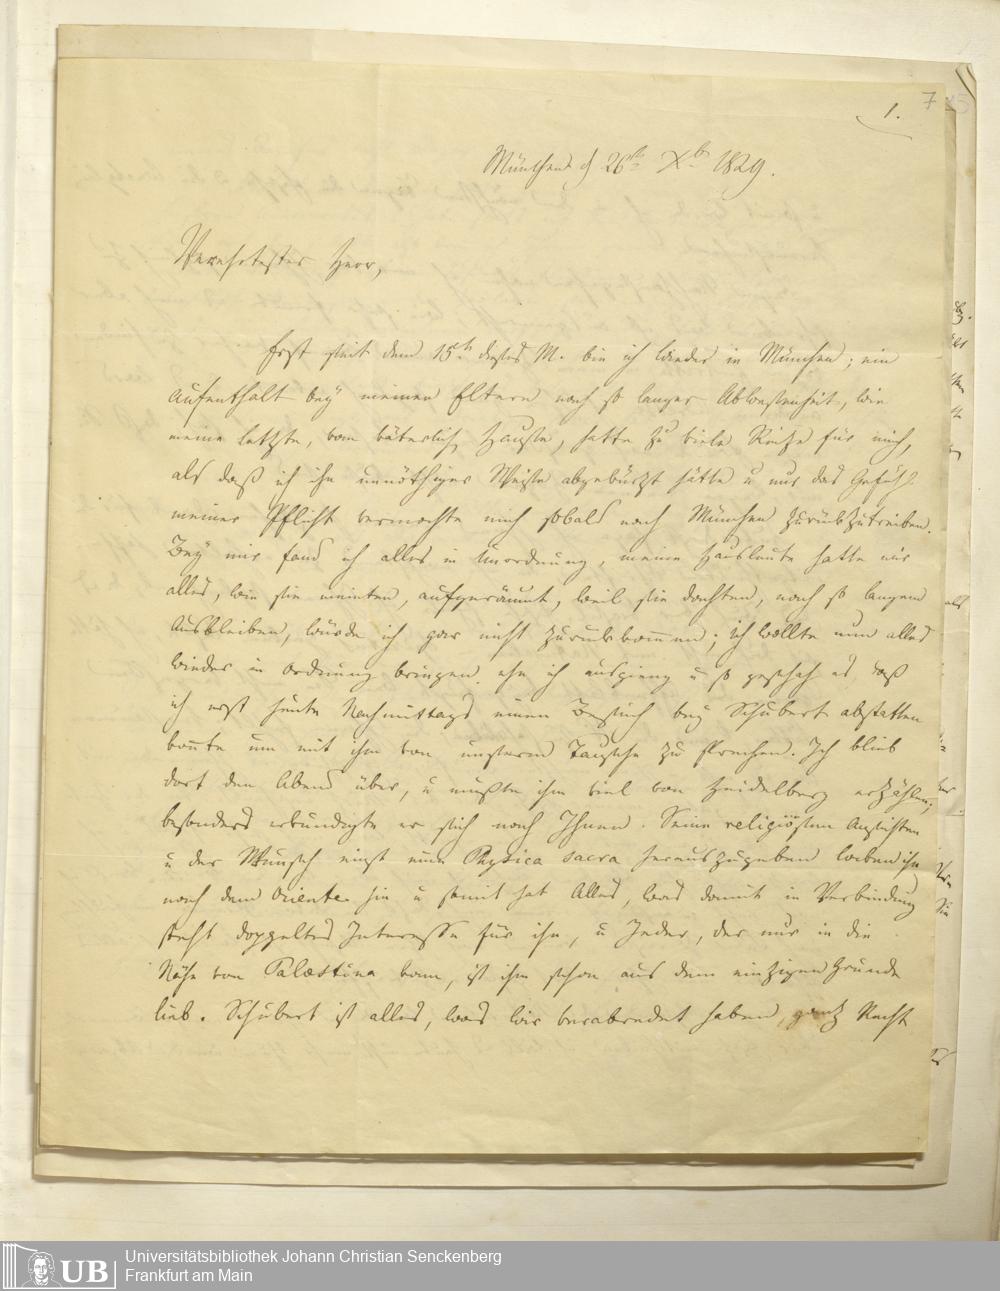 1.
7
München d 26ten Xbr 1829.
Verehrtester Herr,
Erst seit dem 15ten dieses M. bin ich wieder in München; ein
Aufenthalt bey meinen Eltern nach so langer Abwesenheit, wie
meine letzte, vom väterlich Hause, hatte zu viele Reitze für mich,
als daß ich ihn unnöthiger Weise abgekürzt hätte u nur das Gefühl
meiner Pflicht vermochte mich sobald nach München zurückzutreiben.
Bey mir fand ich alles in Unordnung, meine Hausleute hatte mir
alles, wie sie meinten, aufgeräumt, weil sie dachten, nach so langem
Ausbleiben, würde ich gar nicht zurückkommen; ich wollte nun alles
wieder in Ordnung bringen, ehe ich ausgieng u so geschah es, daß
ich erst heute Nachmittags einen Besuch bey Schubert abstatten
konnte um mit ihm von unserem Tausche zu sprechen. Ich blieb
dort den Abend über, u mußte ihm viel von Heidelberg erzählen;
besonders erkundigte er sich nach Ihnen. Seine religiösen Ansichten
u der Wunsch einst eine Physica sacra herauszugeben ziehen ihn
nach dem Oriente hin u somit hat Alles, was damit in Verbindung
steht doppeltes Interesse für ihn, u Jeder, der nur in die
Nähe von Palæstina kam, ist ihm schon aus dem einzigen Grunde
lieb. Schubert ist alles, was wir verabredet haben, ganz Recht
UB
Universitätsbibliothek Johann Christian Senckenberg
Frankfurt am Main